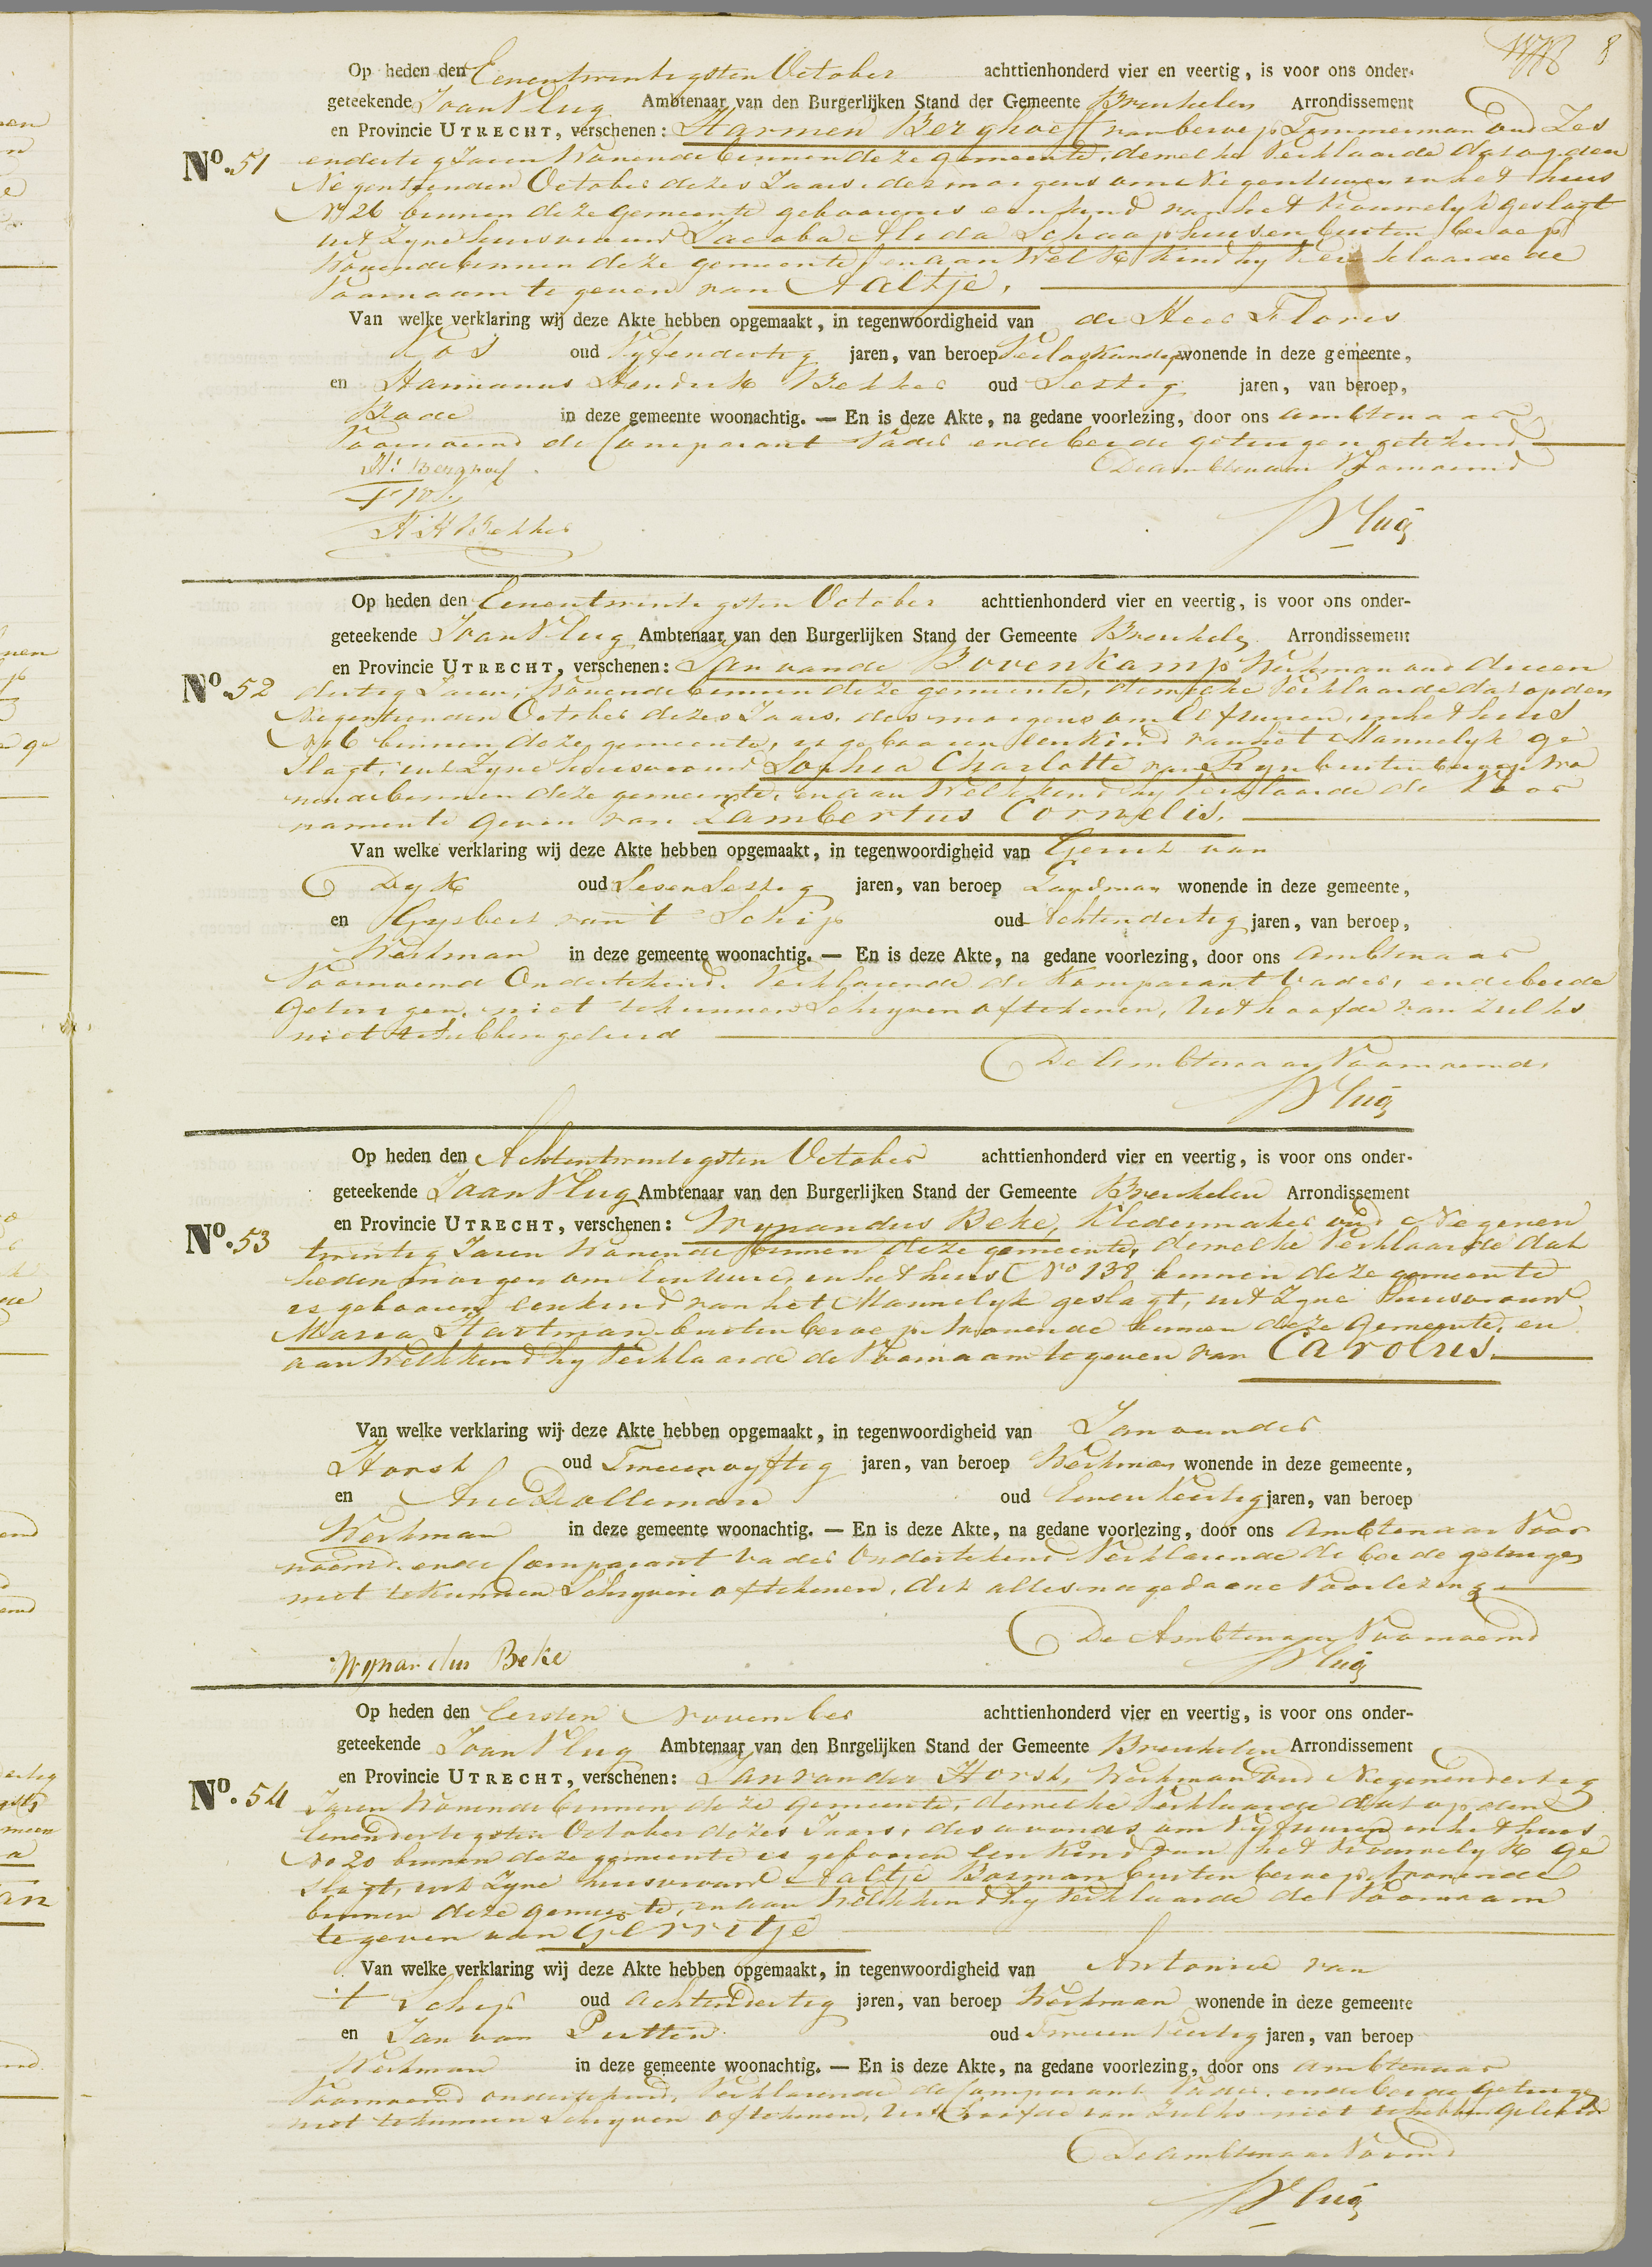 8
Op heden den Eenentwintigsten October achttienhonderd vier en veertig, is voor ons onder-
geteekende Joan Vlug Ambtenaar van den Burgerlijken Stand der Gemeente Breukelen Arrondissement
en Provincie UTRECHT, verschenen: Harmen Berghoeff van beroep Timmerman oud Zes
No. 51 endertig Jaren Wonende binnen deze gemeente, dewelke Verklaarde dat op den
Negentienden October dezes Jaars, des morgens om Negen Uuren in het huis
No 26 binnen deze gemeente gebooren is een kind van het vrouwelyk geslagt
uit Zyne huisvrouw Jacoba Alida Schaaphuisen buiten beroep
Wonende binnen deze gemeente, en aan Welk kind hy Verklaarde de
Voornaam te geven van Aaltje.
Van welke verklaring wij deze Akte hebben opgemaakt, in tegenwoordigheid van de Heer Floris
Vos oud Vyfendertig jaren, van beroep Verloskundige wonende in deze gemeente,
en Harmanus Hendrik Bekker oud Sestig jaren, van beroep,
Bode in deze gemeente woonachtig. — En is deze Akte, na gedane voorlezing, door ons ambtenaar
Voornoemd de Comparant Vader en de beide getuigen getekend
H: Berghoef De ambtenaar Voornoemd
F Vos
H H Bekker Vlug
Op heden den Eenentwintigsten October achttienhonderd vier en veertig, is voor ons onder-
geteekende Joan Vlug Ambtenaar van den Burgerlijken Stand der Gemeente Breukelen Arrondissement
en Provincie UTRECHT, verschenen: Jan van de Bovenkamp Werkman oud drieen
No. 52 dertig Jaren, Wonende binnen deze gemeente, dewelke Verklaarde dat op den
Negentienden October dezes Jaars, des morgens om Elf uuren, in het huis
No 6 binnen deze gemeente, is gebooren een kind van het Mannelyk ge
slagt, uit Zyne huisvrouw Sophia Charlotte van Ryn buiten beroep Wo
nende binnen deze gemeente, en aan Welk kind hy Verklaarde de Voor
namen te geven van Lambertus Cornelis.
Van welke verklaring wij deze Akte hebben opgemaakt, in tegenwoordigheid van Gerrit van
Dyk oud Sesen Sestig jaren, van beroep Landman wonende in deze gemeente,
en Gysbert van 't Schip oud Achtendertig jaren, van beroep,
Werkman in deze gemeente woonachtig. — En is deze Akte, na gedane voorlezing, door ons ambtenaar
Voornoemd Ondertekend. Verklarende de Komparant Vader, en de beide
getuigen, niet te kunnen Schryven of tekenen, uit hoofde van zulks
niet te hebben geleerd
De Ambtenaar Voornoemd
Vlug
Op heden den Achtentwintigsten October achttienhonderd vier en veertig, is voor ons onder-
geteekende Joan Vlug Ambtenaar van den Burgerlijken Stand der Gemeente Breukelen Arrondissement
en Provincie UTRECHT, verschenen: Wynandus Beke, Kledermaker oud Negenen
No. 53 twintig Jaren Wonende binnen deze gemeente, dewelke Verklaarde dat
heden morgen om Een uure, in het huis No 138 binnen deze gemeente
is gebooren een kind van het Mannelyk geslagt, uit Zyne huisvrouw
Maria Hartman buiten beroep Wonende binnen deze Gemeente, en
aan Welk kind hy Verklaarde de Voornaam te geven van Carolus.
Van welke verklaring wij deze Akte hebben opgemaakt, in tegenwoordigheid van Jan vander
Horst oud Tweeenvyftig jaren, van beroep Werkman wonende in deze gemeente,
en Arie Dolleman oud Eenenveertig jaren, van beroep
Werkman in deze gemeente woonachtig. — En is deze Akte, na gedane voorlezing, door ons Ambtenaar Voor
noemd en de Comparant Vader Ondertekend Verklarende de beide getuigen
niet te kunnen Schryven of tekenen, dit alles na gedaane Voorlezing
De Ambtenaar Voornoemd
Wynandus Beke Vlug
Op heden den Eersten November achttienhonderd vier en veertig, is voor ons onder-
geteekende Joan Vlug Ambtenaar van den Burgelijken Stand der Gemeente Breukelen Arrondissement
en Provincie UTRECHT, verschenen: Jan van der Horst, Werkman oud Negenendertig
No. 54 Jaren Wonende binnen deze gemeente, dewelke Verklaarde dat op den
Eenendertigsten October dezes Jaars, des avonds om Vyf uuren in het huis
No 20 binnen deze gemeente is gebooren een kind van het Vrouwelyk ge
slagt, uit Zyne huisvrouw Aaltje Bosman buiten beroep Wonende
binnen deze gemeente, en aan Welk kind hy Verklaarde de Voornaam
te geven van Gerritje
Van welke verklaring wij deze Akte hebben opgemaakt, in tegenwoordigheid van Antonie van
't Schip oud Achtendertig jaren, van beroep Werkman wonende in deze gemeente
en Jan van Putten oud Tweeen Veertig jaren, van beroep
Werkman in deze gemeente woonachtig. — En is deze Akte, na gedane voorlezing, door ons ambtenaar
Voornoemd ondertekend, Verklarende de Comparant Vader, en de beide getuigen
niet te kunnen Schryven of tekenen, uit hoofde van Zulks niet te hebben geleerd
De ambtenaar Voornd
Vlug